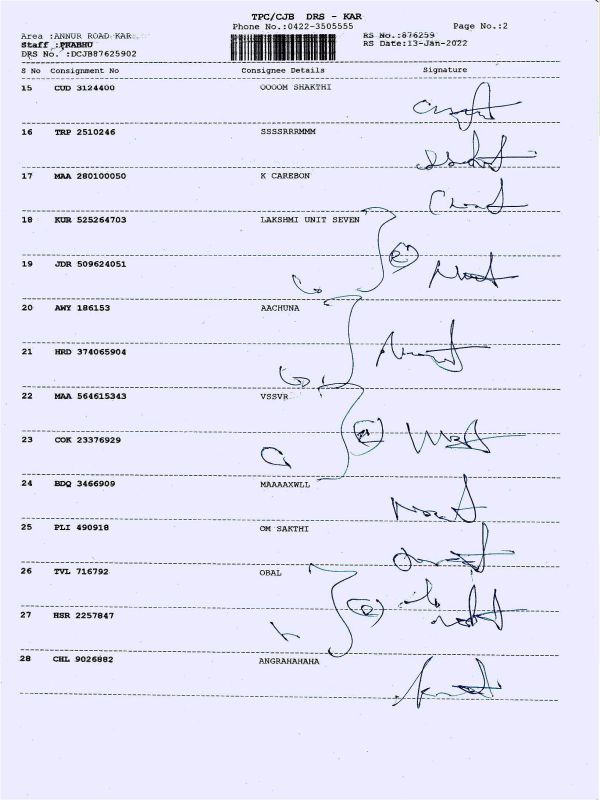 TPC/CJB DRS - KAR
Phone No.:0422-3505555 Page No.:2
Area :ANNUR ROAD KAR RS No.:876259
Staff :PRABHU RS Date:13-Jan-2022
DRS No. :DCJB87625902
S No Consignment No Consignee Details Signature
15 CUD 3124400 OOOOM SHAKTHI
16 TRP 2510246 SSSSRRRMMM
17 MAA 280100050 K CAREBON
18 KUR 525264703 LAKSHMI UNIT SEVEN
19 JDR 509624051
20 AWY 186153 AACHUNA
21 HRD 374065904
22 MAA 564615343 VSSVR
23 COK 23376929
24 BDQ 3466909 MAAAAXWLL
25 PLI 490918 OM SAKTHI
26 TVL 716792 OBAL
27 HSR 2257847
28 CHL 9026882 ANGRAHAHAHA